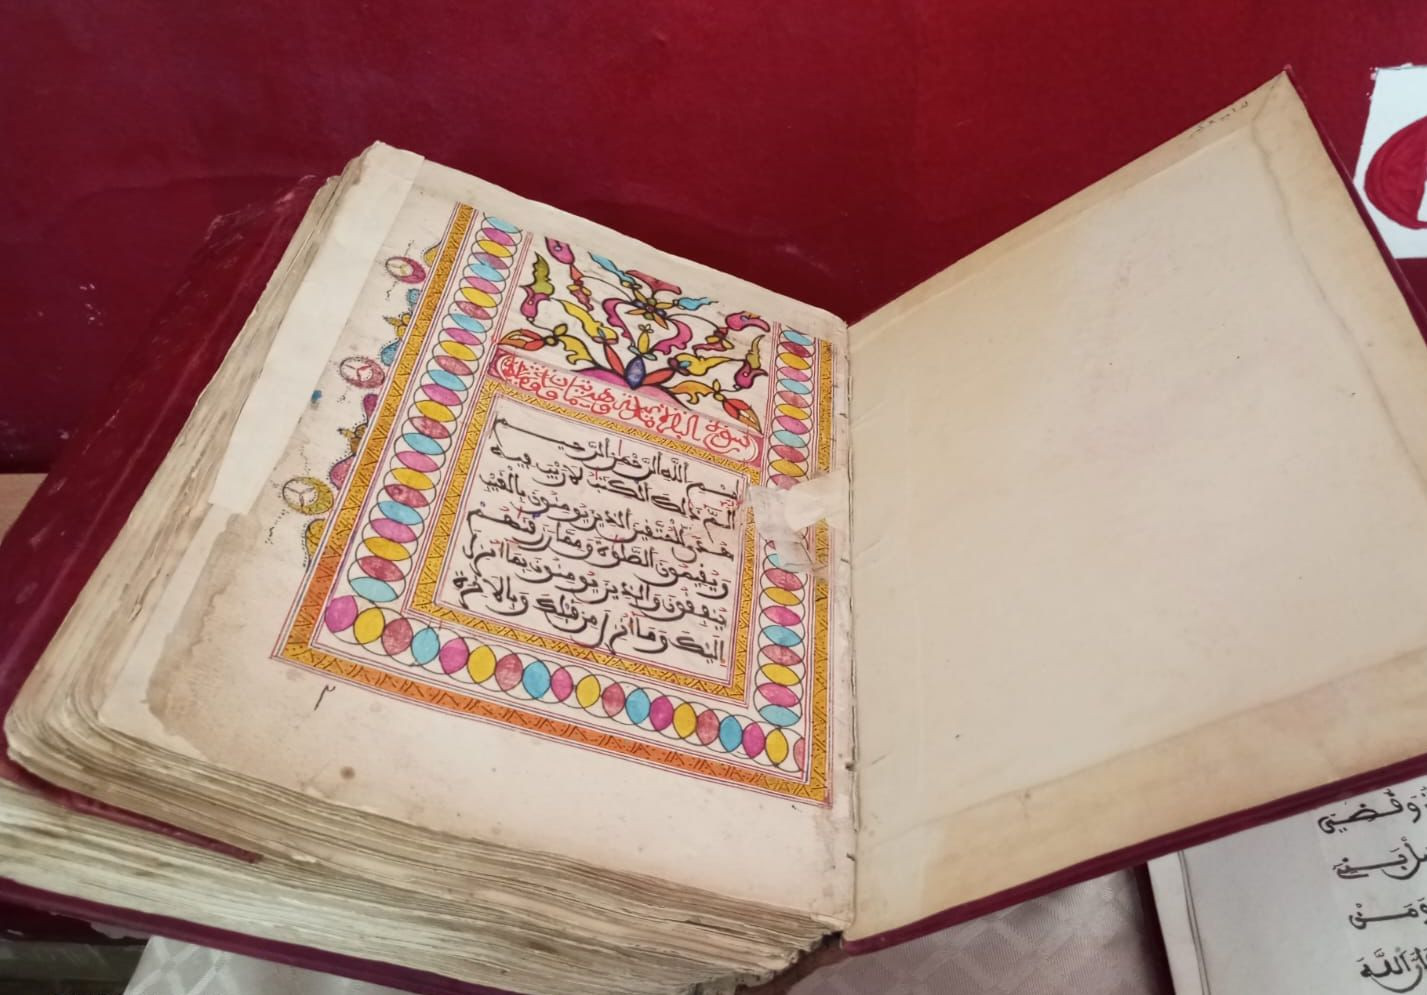 سورة البقرة
بسم الله الرحمن الرحيم
الم ذلك الكتب لا ريب فيه
هدى للمتقين الذين يومنون بالغيب
ويقيمون الصلوة ومما رزقنهم
ينفقون والذين يومنون بما أنزل
إليك وما أنزل من قبلك وبالاخرة
٢
ومن
الله